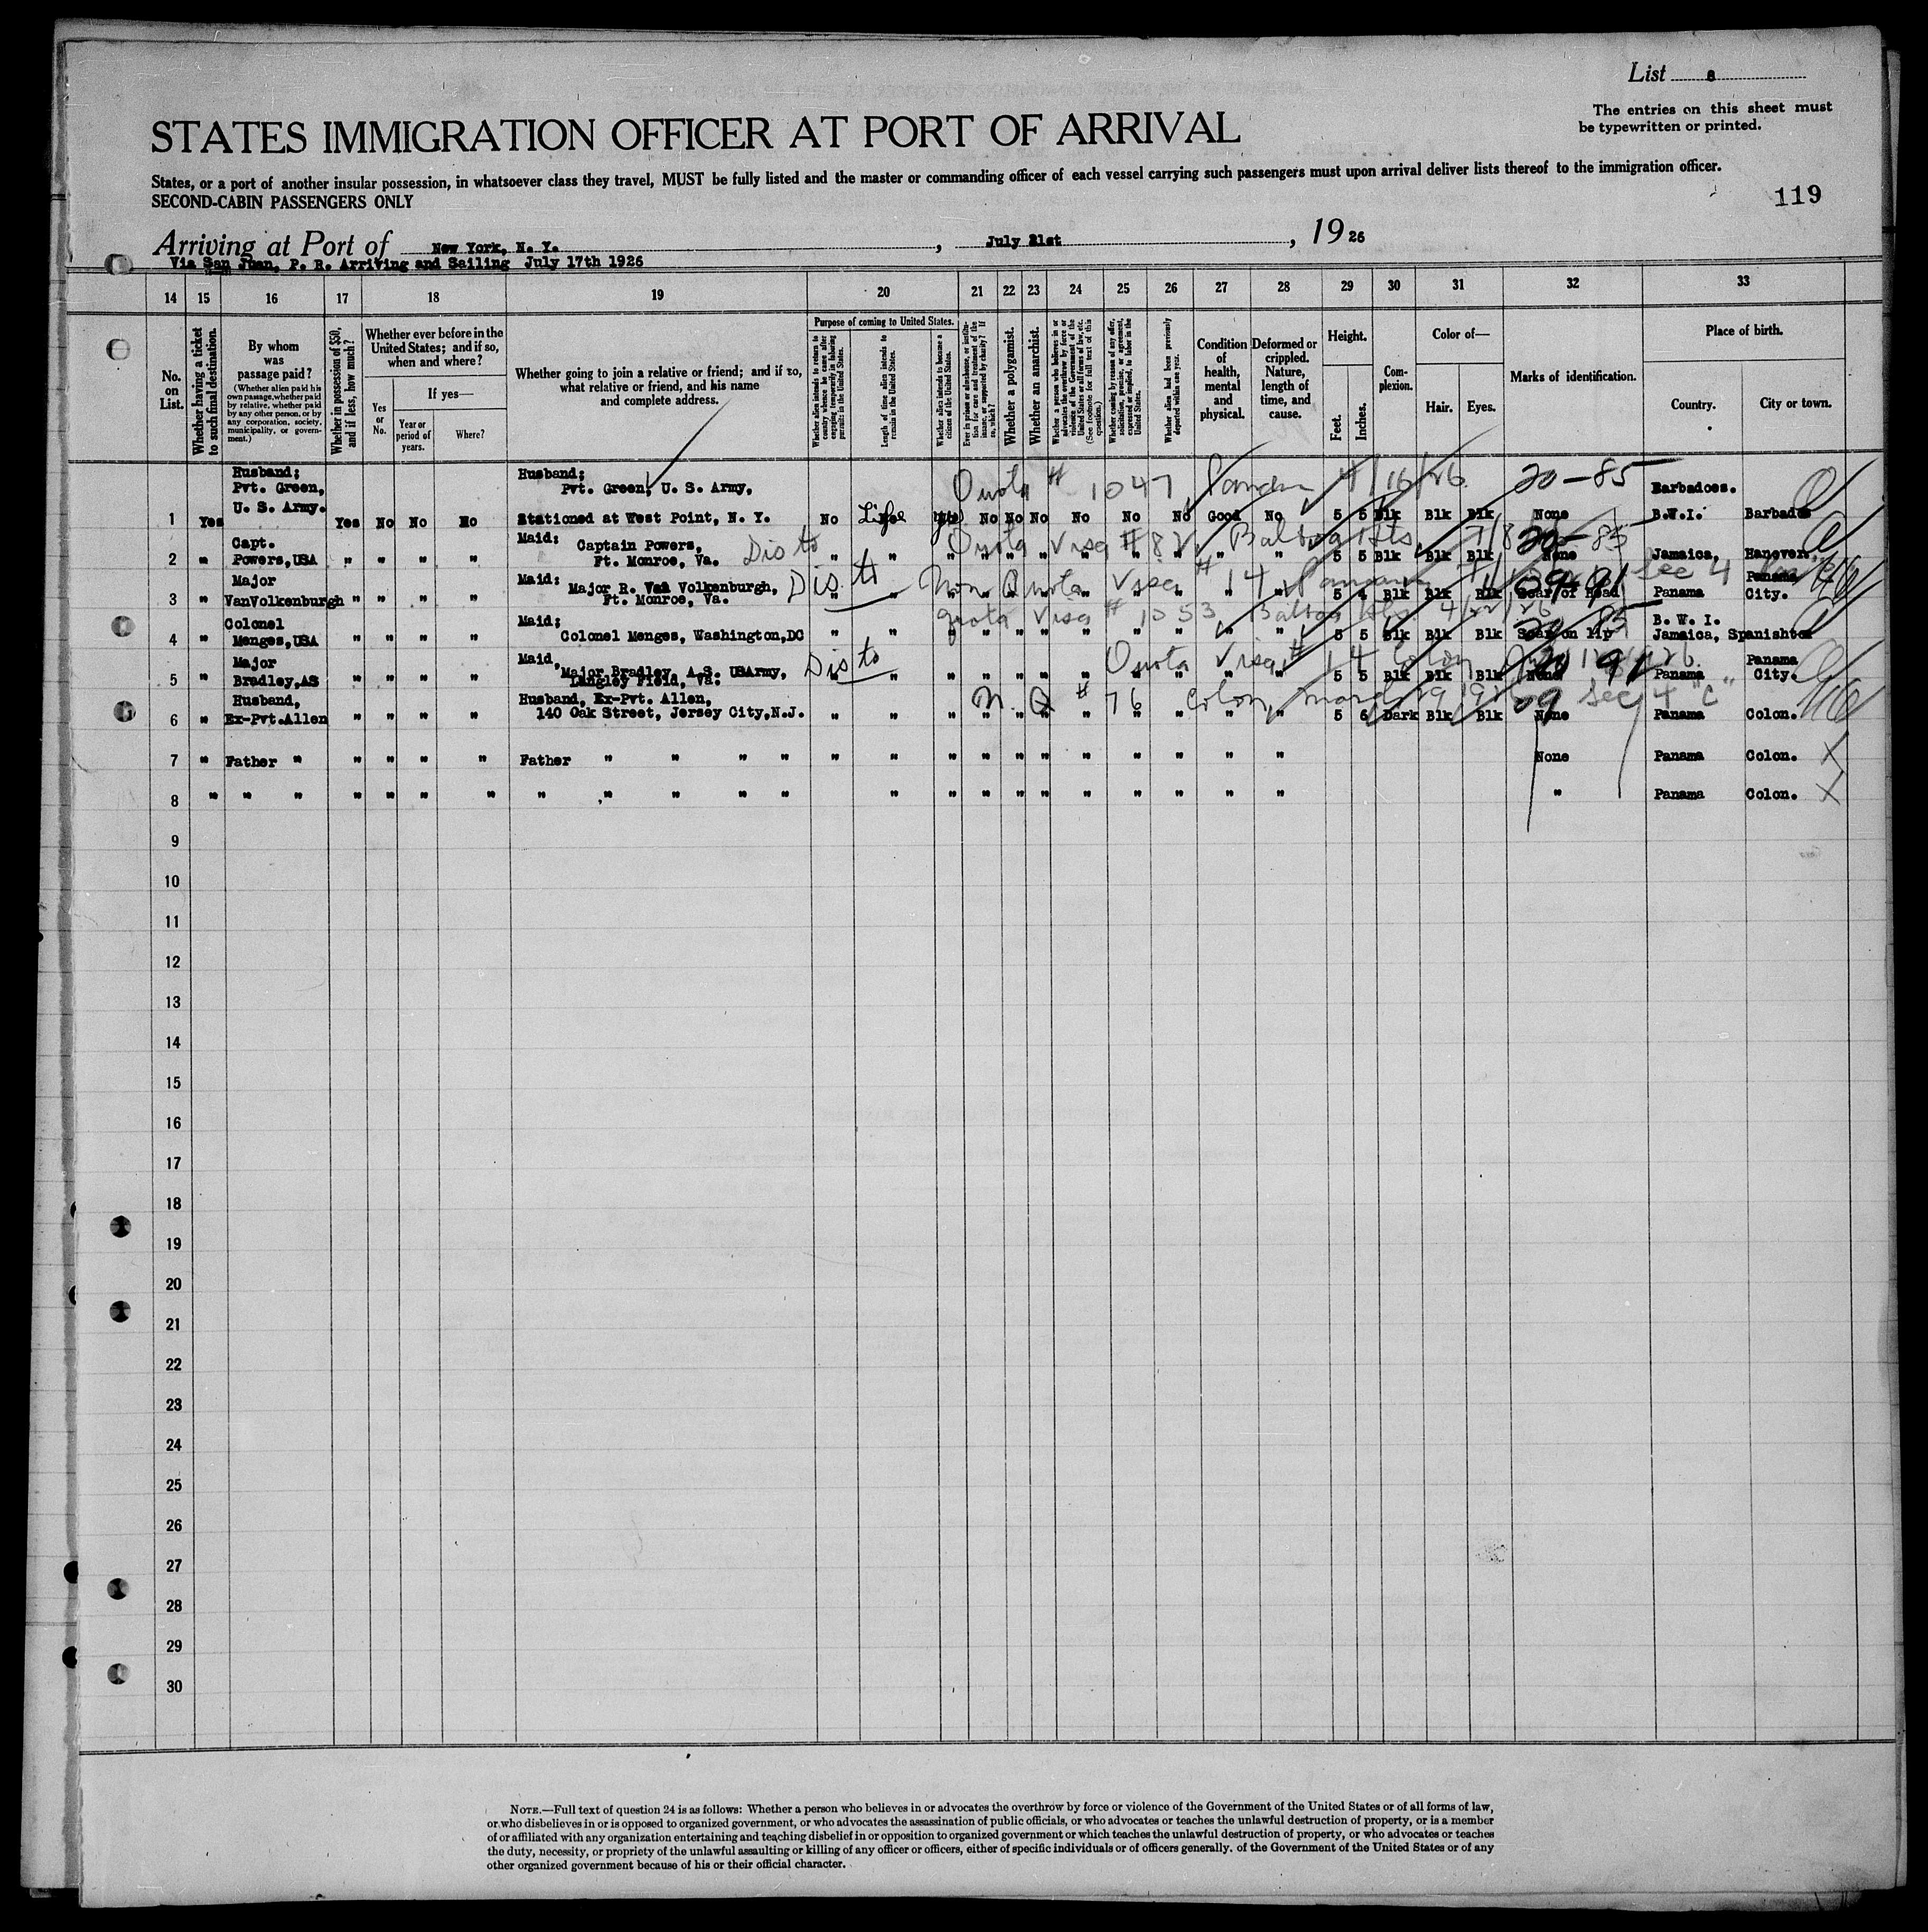 List 8
The entries on this sheet must
be typewritten or printed.
STATES IMMIGRATION OFFICER AT PORT OF ARRIVAL
States, or a port of another insular possession, in whatsoever class they travel, MUST be fully listed and the master or commanding officer of each vessel carrying such passengers must upon arrival deliver lists thereof to the immigration officer.
SECOND-CABIN PASSENGERS ONLY
119
Arriving at Port of New York, N. Y. , July 21st , 1926
Via San Juan, P. R. Arriving and Sailing July 17th 1926
14 15 16 17 18 19 20 21 22 23 24 25 26 27 28 29 30 31 32 33
No. on List.
Whether having a ticket to such final destination.
By whom was passage paid?
(Whether alien paid his own passage, whether paid by relative, whether paid by any other person, or by any corporation, society, municipality, or government.)
Whether in possession of $50, and if less, how much?
Whether ever before in the United States; and if so, when and where?
Yes or No.
If yes—
Year or period of years.
Where?
Whether going to join a relative or friend; and if so, what relative or friend, and his name and complete address.
Purpose of coming to United States.
Whether alien intends to return to country whence he came after engaging temporarily in laboring pursuits in the United States.
Length of time alien intends to remain in the United States.
Whether alien intends to become a citizen of the United States.
Ever in prison or almshouse, or institution for care and treatment of the insane, or supported by charity? If so, which?
Whether a polygamist.
Whether an anarchist.
Whether a person who believes in or advocates the overthrow by force or violence of the Government of the United States or all forms of law, etc. (See footnote for full text of this question.)
Whether coming by reason of any offer, solicitation, promise, or agreement, expressed or implied, to labor in the United States.
Whether alien had been previously deported within one year.
Condition of health, mental and physical.
Deformed or crippled. Nature, length of time, and cause.
Height.
Feet. Inches.
Complexion.
Color of—
Hair. Eyes.
Marks of identification.
Place of birth.
Country. City or town.
Husband; Pvt. Green, U. S. Army. Husband; Pvt. Green, U. S. Army, Quota # 1047 4/16/26 20-85 Barbadoes.
1 Yes Yes No No No Stationed at West Point, N. Y. No Life yes No No No No No No Good No 5 5 Blk Blk Blk None B.W.I. Barbados
Capt. Maid; Captain Powers, Dis to Quota Visa #82 Balboa Hts. 7/8 20-85
2 " Powers,USA " " " " Ft. Monroe, Va. " " " " " " " " " " " 5 5 Blk Blk Blk None Jamaica, Hanover,
Major Maid; Major R. Van Volkenburgh, Dis to Non Quota Visa # 14 Panama Sec 4 Panama
3 " VanVolkenburgh " " " " Ft. Monroe, Va. " " " " " " " " " " " 5 4 Blk Blk Blk Scar of Head Panama City.
Colonel Maid; Quota Visa # 1053 Balboa Hts. 4/22/26 20 85 B. W. I.
4 " Menges,USA " " " " Colonel Menges, Washington,DC " " " " " " " " " " " 5 5 Blk Blk Blk Scar on lip Jamaica, Spanishto
Major Maid, Major Bradley, A.S. USArmy, Dis to Quota Visa # 14 Colon 20 91 Panama
5 " Bradley,AS " " " " Langley Field, Va. " " " " " " " " " " " 5 5 Blk Blk Blk None Panama City.
Husband, Husband, Ex-Pvt. Allen, N. Q # 76 Colon, March 29 09 Sec 4 "C"
6 " Ex-Pvt.Allen " " " " 140 Oak Street, Jersey City,N.J. " " " " " " " " " " " 5 6 Dark Blk Blk None Panama Colon.
7 " Father " " " " " Father " " " " " " " " " " " " " " " None Panama Colon. X
8 " " " " " " " " " " " " " " " " " " " " " " " " Panama Colon. X
9
10
11
12
13
14
15
16
17
18
19
20
21
22
23
24
25
26
27
28
29
30
NOTE.—Full text of question 24 is as follows: Whether a person who believes in or advocates the overthrow by force or violence of the Government of the United States or of all forms of law,
or who disbelieves in or is opposed to organized government, or who advocates the assassination of public officials, or who advocates or teaches the unlawful destruction of property, or is a member
of or affiliated with any organization entertaining and teaching disbelief in or opposition to organized government or which teaches the unlawful destruction of property, or who advocates or teaches
the duty, necessity, or propriety of the unlawful assaulting or killing of any officer or officers, either of specific individuals or of officers generally, of the Government of the United States or of any
other organized government because of his or their official character.